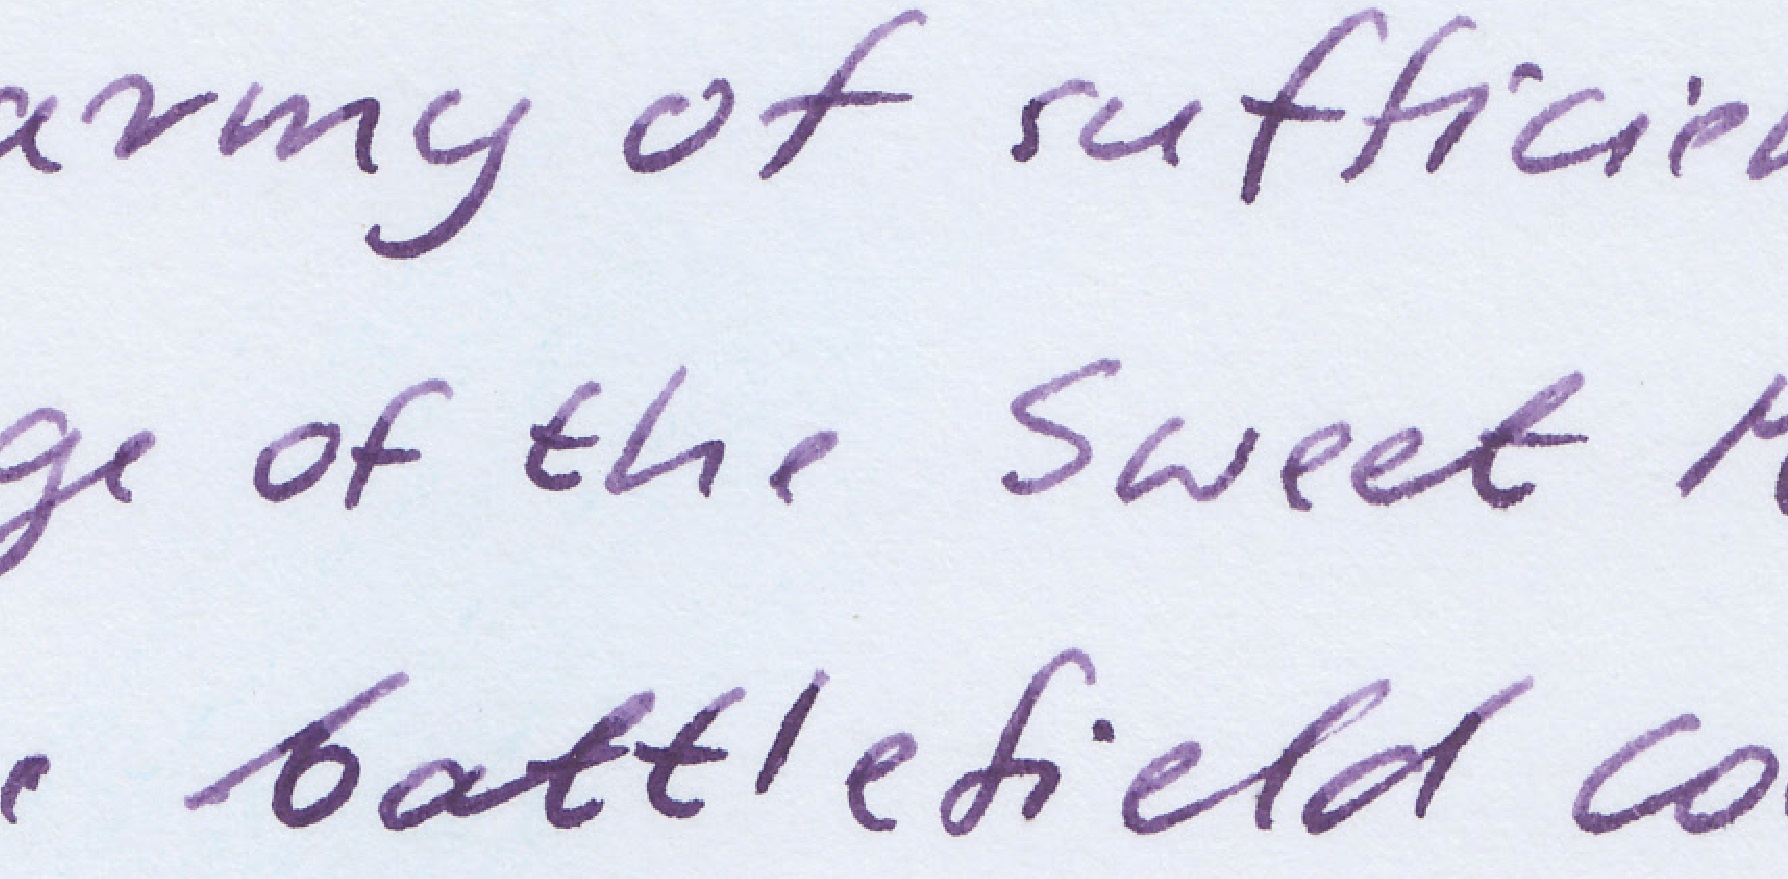 army of sufficien
ge of the Sweet
e battlefield co